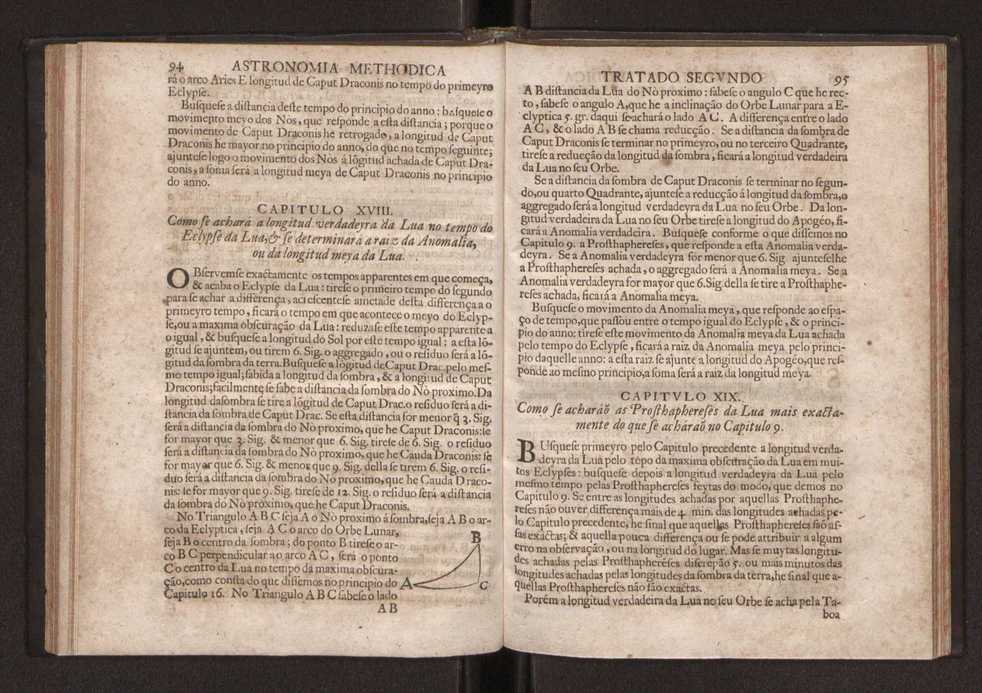 94 ASTRONOMIA METHODICA
rá o arco Aries E longitud de Caput Draconis no tempo do primeyro
Eclypse.
Busquese a distancia deste tempo do principio do anno: busquese o
movimento meyo dos Nos, que responde a esta distancia; porque o
movimento de Caput Draconis he retrogado, a longitud de Caput
Draconis he mayor no principio do anno, do que no tempo seguinte;
ajuntese logo o movimento dos Nos á lõgitud achada de Caput Dra-
conis, a soma será a longitud meya de Caput Draconis no principio
do anno.
CAPITULO XVIII.
Como se achará a longitud verdadeyra da Lua no tempo do
Eclypse da Lua, & se determinará a raiz da Anomalia,
ou da longitud meya da Lua.
OBservemse exactamente os tempos apparentes em que começa,
& acaba o Eclypse da Lua: tirese o primeiro tempo do segundo
para se achar a differença, acrescentese ametade desta differença a o
primeyro tempo, ficará o tempo em que acontece o meyo do Eclyp-
se, ou a maxima obscuração da Lua: reduzase este tempo apparente a
o igual, & busquese a longitud do Sol por este tempo igual: a esta lõ-
gitud se ajuntem, ou tirem 6. Sig. o aggregado, ou o residuo será a lõ-
gitud da sombra da terra. Busquese a lõgitud de Caput Drac. pelo mes-
mo tempo igual; sabida a longitud da sombra, & a longitud de Caput
Draconis; facilmente se sabe a distancia da sombra do Nò proximo. Da
longitud da sombra se tire a lõgitud de Caput Drac. o residuo será a di-
stancia da sombra de Caput Drac. Se esta distancia for menor q̃ 3. Sig.
será a distancia da sombra do Nò proximo, que he Caput Draconis: se
for mayor que 3. Sig. & menor que 6. Sig. tirese de 6. Sig. o residuo
será a distancia da sombra do Nò proximo, que he Cauda Draconis: se
for mayor que 6. Sig. & menor que 9. Sig. della se tirem 6. Sig. o resi-
duo será a distancia da sombra do Nò proximo, que he Cauda Draco-
nis: se for mayor que 9. Sig. tirese de 12. Sig. o residuo será a distancia
da sombra do Nò proximo, que he Caput Draconis.
No Triangulo A B C seja A o Nò proximo á sombra, seja A B o ar-
co da Ecliptica, seja A C o arco do Orbe Lunar,
seja B o centro da sombra; do ponto B tirese o ar-
co B C perpendicular ao arco A C, será o ponto
C o centro da Lua no tempo da maxima obscura-
ção, como consta do que dissemos no principio do
Capitulo 16. No Triangulo A B C sabese o lado
A B
B
A
C
TRATADO SEGVNDO 95
A B distancia da Lũa do Nò proximo: sabese o angulo C que he rec-
to, sabese o angulo A, que he a inclinação do Orbe Lunar para a E-
clyptica 5. gr. daqui se achará o lado A C. A differença entre o lado
A C, & o lado A B se chama reducção. Se a distancia da sombra de
Caput Draconis se terminar no primeyro, ou no terceiro Quadrante,
tirese a reducção da longitud da sombra, ficará a longitud verdadeira
da Lua no seu Orbe.
Se a distancia da sombra de Caput Draconis se terminar no segun-
do, ou quarto Quadrante, ajuntese a reducção á longitud da sombra, o
aggregado será a longitud verdadeyra da Lua no seu Orbe. Da lon-
gitud verdadeira da Lua no seu Orbe tirese a longitud do Apogéo, fi-
cará a Anomalia verdadeira. Busquese conforme o que dissemos no
Capitulo 9. a Prosthaphereses, que responde a esta Anomalia verda-
deyra. Se a Anomalia verdadeyra for menor que 6. Sig ajunteselhe
a Prosthaphereses achada, o aggregado será a Anomalia meya. Se a
Anomalia verdadeyra for mayor que 6. Sig. della se tire a Prosthaphe-
reses achada, ficará a Anomalia meya.
Busquese o movimento da Anomalia meya, que responde ao espa-
ço de tempo, que passou entre o tempo igual do Eclypse, & o princi-
pio do anno: tirese este movimento da Anomalia meya da Lua achada
pelo tempo do Eclypse, ficará a raiz da Anomalia meya pelo princi-
pio daquelle anno: a esta raiz se ajunte a longitud do Apogéo, que res-
ponde ao mesmo principio, a soma será a raiz da longitud meya.
CAPITVLO XIX.
Como se acharáõ as Prosthaphereses da Lua mais exacta-
mente do que se acháraõ no Capitulo 9.
BUsquese primeyro pelo Capitulo precedente a longitud verda-
deyra da Lua pelo tẽpo da maxima obscuração da Lua em mui-
tos Eclypses: busquese depois a longitud verdadeyra da Lua pelo
mesmo tempo pelas Prosthaphereses feytas do modo, que demos no
Capitulo 9. Se entre as longitudes achadas por aquellas Prosthaphe-
reses não ouver differença mais de 4. min. das longitudes achadas pe-
lo Capitulo precedente, he sinal que aquellas Prosthaphereses saõ as-
sas exactas; & aquella pouca differença ou se pode attribuir a algum
erro na observação, ou na longitud do lugar. Mas se muytas longitu-
des achadas pelas Prosthaphereses discrepão 5. ou mais minutos das
longitudes achadas pelas longitudes da sombra da terra, he sinal que a-
quellas Prosthaphereses não são exactas.
Porém a longitud verdadeira da Lua no seu Orbe se acha pela Ta-
boa